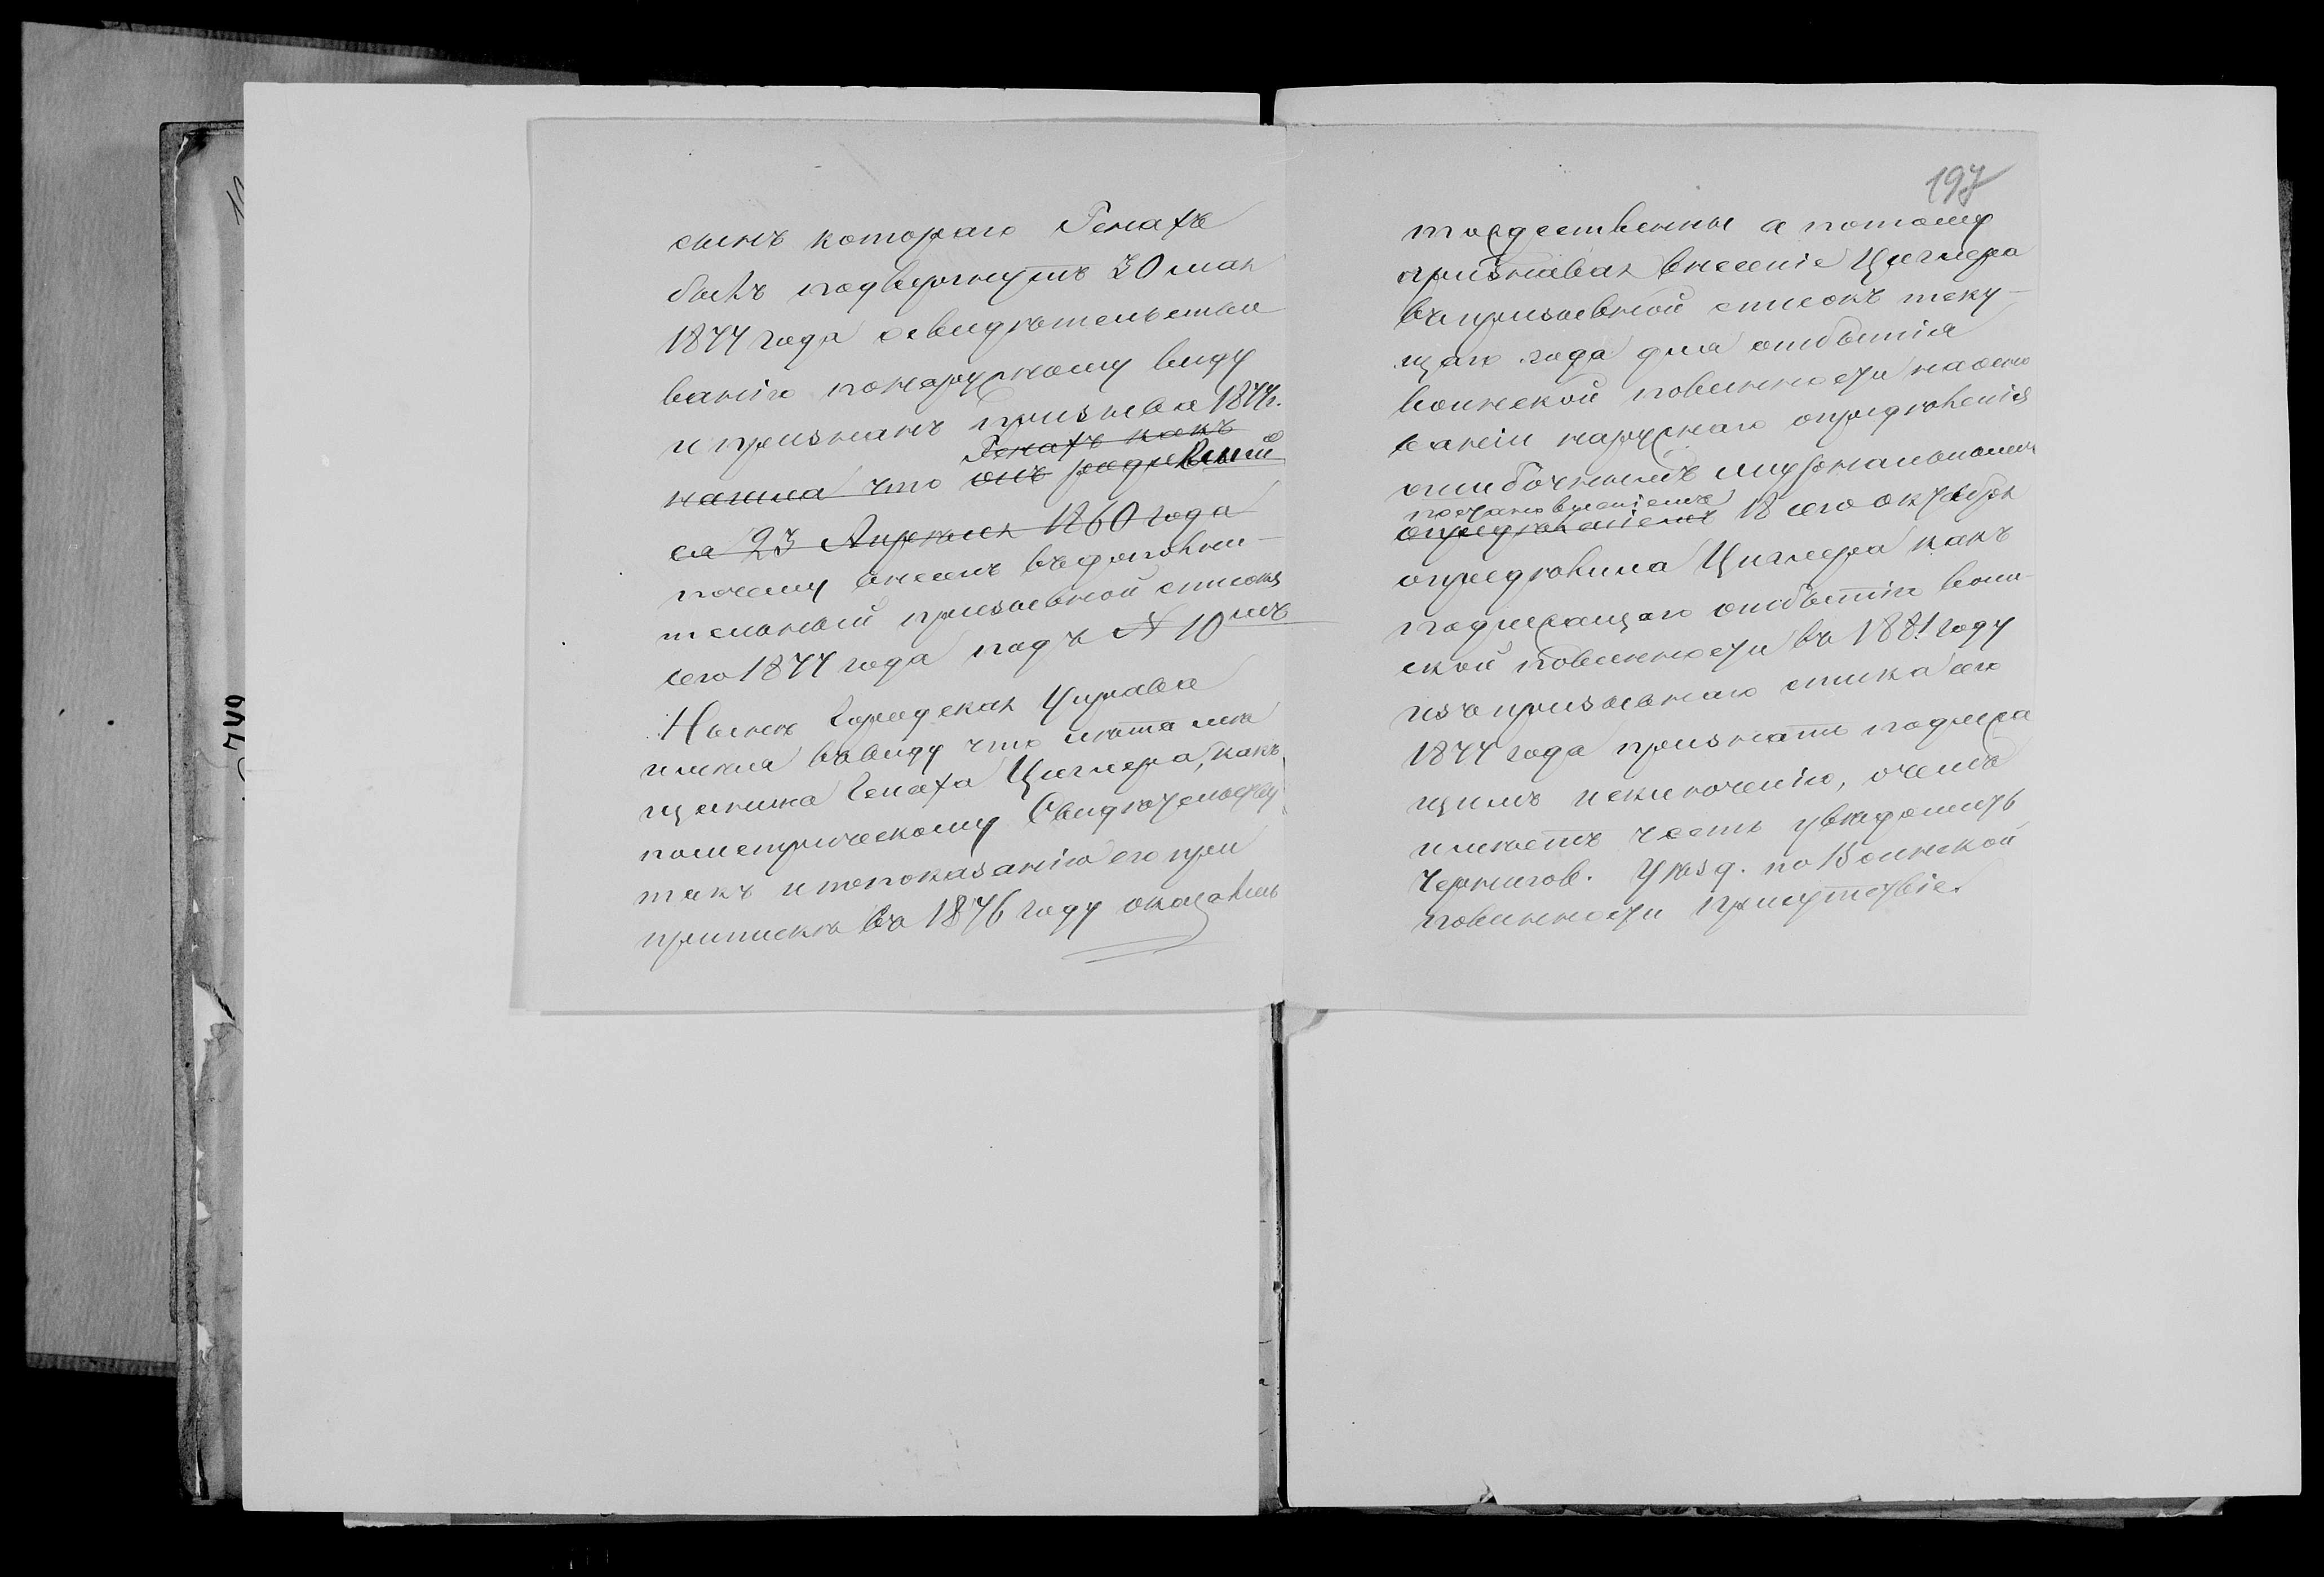 сынъ котораго Генахъ
былъ подвергнутъ 30 мая
1877 года освидѣтельство
ванію понаружному виду
и признанъ призыва 1877г.
Генахъ какъ
нашла что онъ родившій
ся 23 Апрѣля 1860 года
почему внесенъ въ дополни-
тельный призывной списокъ
сего 1877 года подъ № 10мъ
Нынѣ Городская Управа
имѣя ввиду что лѣта мѣ
щанина Генаха Циглера, какъ
пометрическому Свидѣтельству
такъ и попоказанію его при
припискѣ въ 1876 году оказались
197
тождественны а потому
признавая внесеніе Циглера
въ призывной списокъ теку-
щаго года для отбытія
воинской повинности на осно
ваніи наружнаго опредѣленія
ошибочнымъ
постановленіемъ
опредѣленіемъ 18 сего октября
опредѣлила Циглера какъ
подлежащаго отбытію воин-
ской повинности въ 1881 году
изъ призывнаго списка сего
1877 года признать подлежа
щимъ исключенію, о чемъ
имѣетъ честь увѣдомить
Чернигов. Уѣзд. по Воинской
повинности Присутствіе.
740